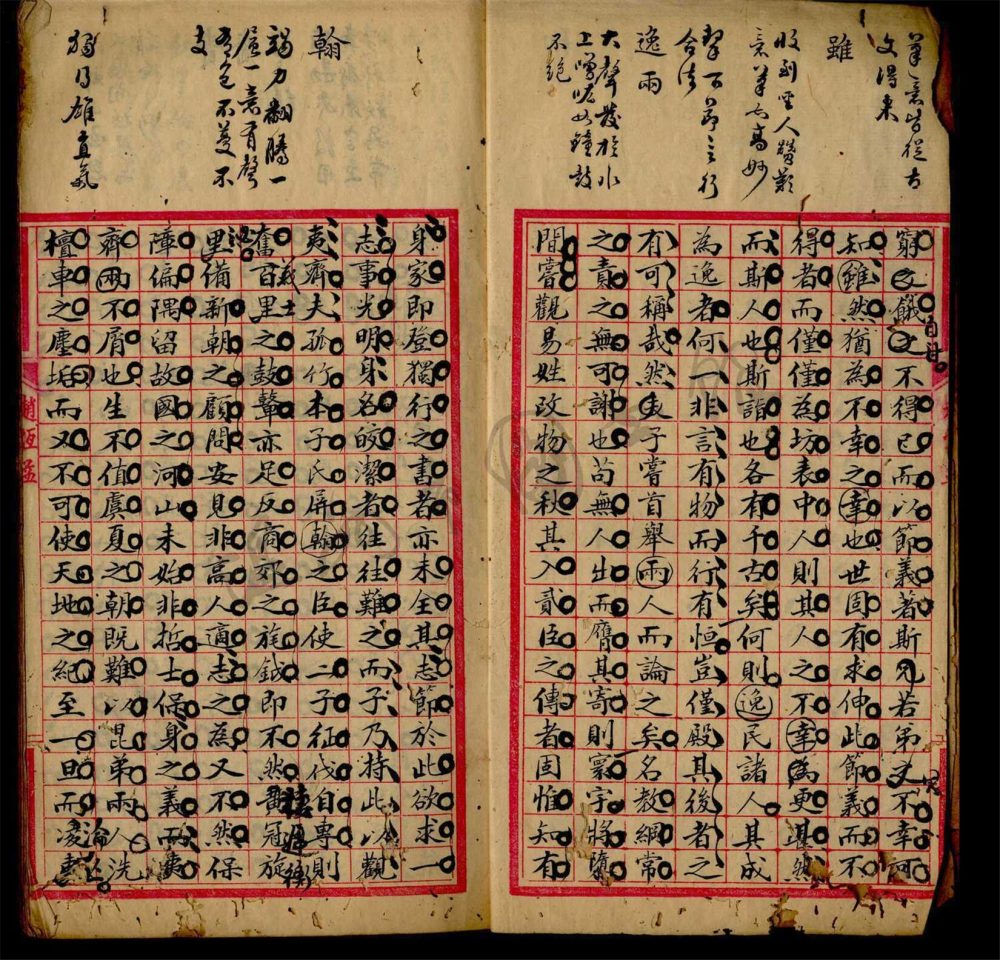 筆意皆從古
文得來
雖
收到聖人贊歎
意筆亦高妙
挈下節三行
合法
逸 雨
大聲發於水
上噌吰如鐘鼓
不絕
窮之餓之不得已而以節義著斯兄若弟之不幸可
知雖然猶為不幸之幸也世固有求伸此節義而不
得者而僅僅為坊表中人則其人之不幸為更甚然
而斯人也斯詣也各有千古矣何則逸民諸人其成
為逸者何一非言有物而行有恒豈僅殿其後者之
有可稱哉然夫子嘗首舉兩人而論之矣名教綱常
之責之無可謝也苟無人出而膺其寄則寰宇將墮
間嘗觀易姓改物之秋其入貳臣之傳者固惟知有
翰
竭力翻騰一
層一意有聲
有色不蔓不
支
獨得雄直氣
身家即登獨行之書者亦未全其志節於此欲求一
志事光明身名皎潔者往往難之而子乃持此以觀
夷齊夫孤竹本子民屏翰之臣使二子征伐自專則
奮百里之鼓鼙亦足反商郊之旄鉞即不然冠旋
里備新朝之顧問安見非高人適志之為又不然保
障偏隅留故國之河山未始非哲士保身之義而夷
齊兩不屑也生不值虞夏之朝既難以昆弟兩人洗
檀車之塵垢而又不可使天地之紀至一旦而淩